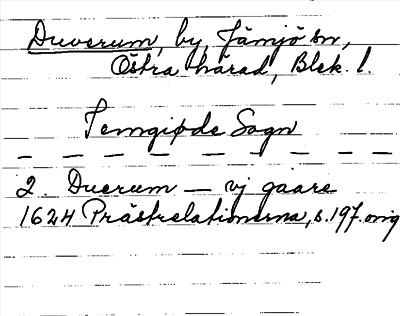 Duverum, by, Jämjö sn,
Östra härad, Blek. l.
Jemgiøde Sogn
2. Duerum — vj gaare
1624 Prästrelationerna, s. 197. orig